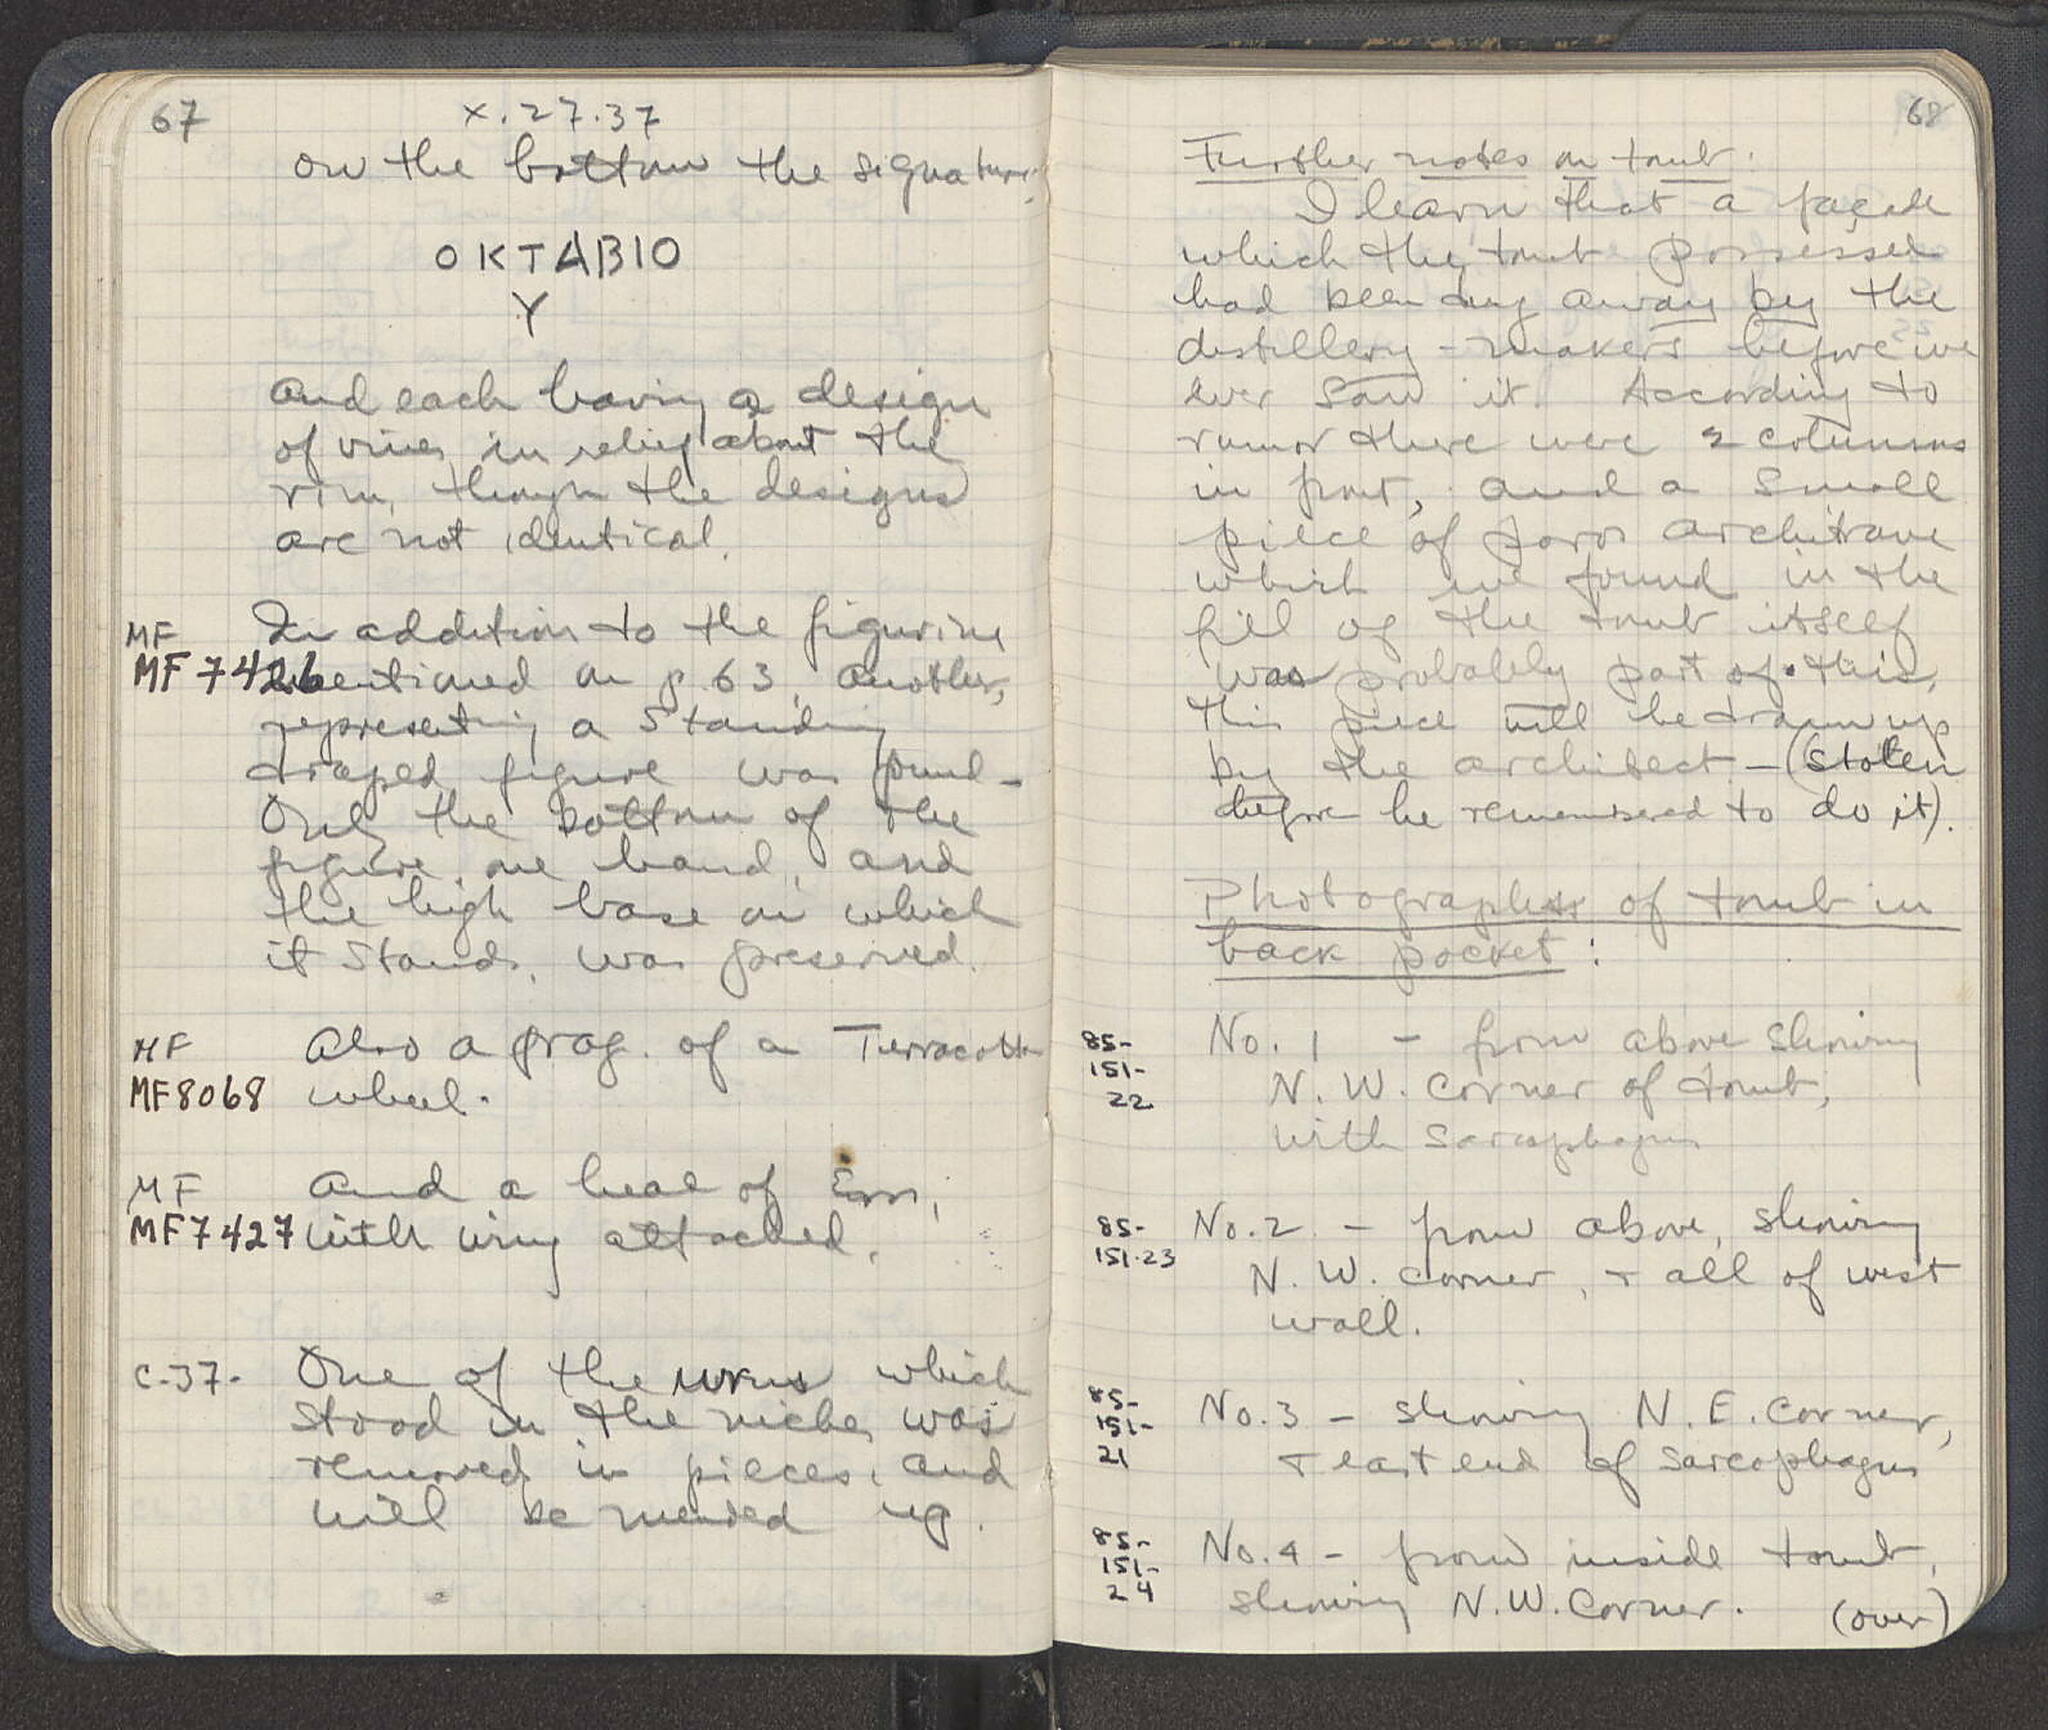 67
X.27.37
on the bottom the signature:
OKTABIO
Y
and each having a design
of vines in relief about the
rim, though the designs
are not identical.
MF
MF 7426
In addition to the figurine
mentioned on p. 63, another,
representing a standing
draped figure was found -
Only the bottom of the
figure, one hand, and
the high base on which
it stands, was preserved.
MF
MF8068
Also a frag. of a Terracotta
wheel.
MF
MF7427
And a head of Eros,
with wing attached.
C-37-
One of the urns which
stood in the niches was
removed in pieces, and
will be mended up.
68
Further notes on tomb:
I learn that a façade
which the tomb possessed
had been dug away by the
distillery-makers before we
ever saw it. According to
rumor there were 2 columns
in front, and a small
piece of poros architrave
which we found in the
fill of the tomb itself
was probably part of this.
This piece will be drawn up
by the architect - (stolen
before he remembered to do it).
Photographs of tomb in
back pocket:
85-
151-
22
No. 1 - from above showing
N.W. corner of tomb,
with sarcophagus
85-
151-23
No. 2 - from above, showing
N.W. corner, + all of west
wall.
85-
151-
21
No. 3 - showing N.E. corner,
+ east end of sarcophagus
85-
151-
24
No. 4 - from inside tomb,
showing N.W. Corner.
(over)